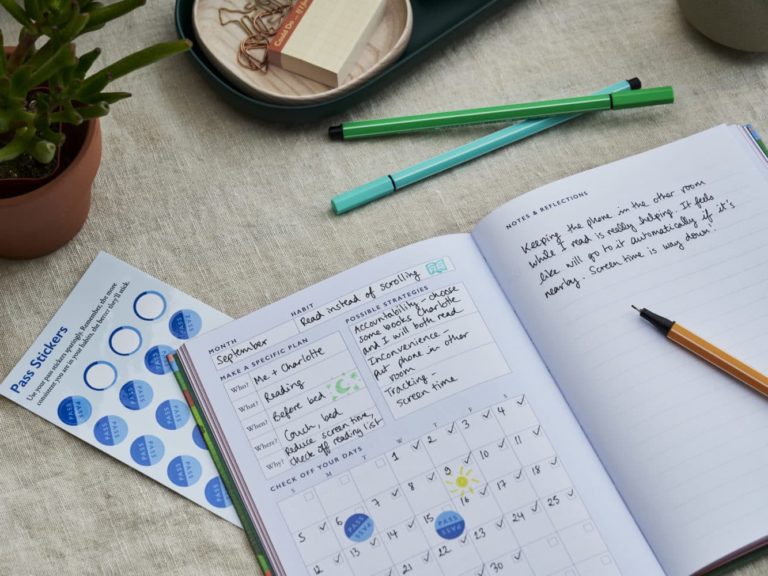 Could Do – If I
Pass Stickers
Use your pass stickers sparingly. Remember, the more
consistent you are in your habits, the better they'll stick.
PASS
PASS
PASS
PASS
PASS
PASS
PASS
PASS
PASS
MONTH
September
HABIT
Read instead of scrolling
MAKE A SPECIFIC PLAN
Who? Me + Charlotte
What? Reading
When? Before bed
Where? Couch, bed
Why? Reduce screen time,
check off reading list
POSSIBLE STRATEGIES
Accountability – choose
some books Charlotte
and I will both read
Inconvenience –
Put phone in other
room
Tracking –
screen time
CHECK OFF YOUR DAYS
S M T W T F S
1 2 3 4
5 6 7 8 9 10 11
PASS PASS
12 13 14 15 16 17 18
PASS PASS
21 22 23 24 25
30
NOTES & REFLECTIONS
Keeping the phone in the other room
while I read is really helping. It feels
like will go to it automatically if it's
nearby. Screen time is way down!